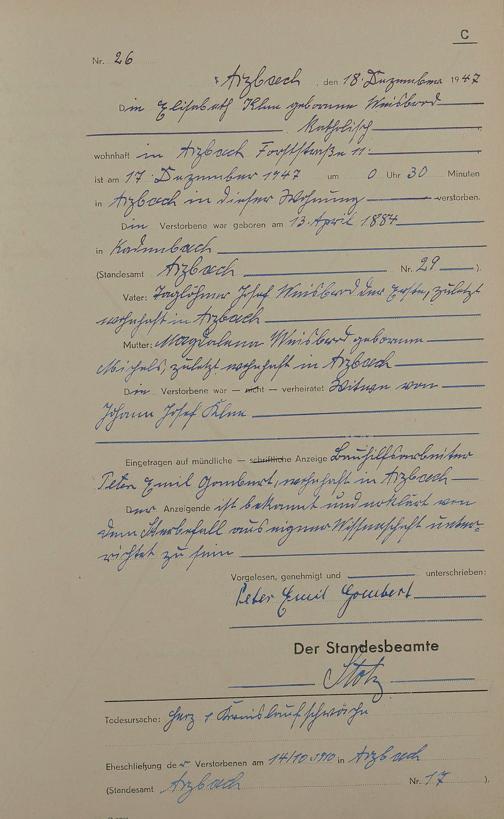 C
Nr. 26
Arzbach, den 18. Dezember 1947
Die Elisabeth Klee geborene Weisbrod
Katholisch,
wohnhaft in Arzbach Forststraße 11.
ist am 17. Dezember 1947 um 0 Uhr 30 Minuten
in Arzbach in dieser Wohnung verstorben.
Die Verstorbene war geboren am 13. April 1884
in Kadenbach
(Standesamt Arzbach Nr. 29 ).
Vater: Taglöhner Josef Weisbrod der Erste, zuletzt
wohnhaft in Arzbach
Mutter: Magdalena Weisbrod geborene
Michels, zuletzt wohnhaft in Arzbach
Die Verstorbene war — nicht — verheiratet Witwe von
Johann Josef Klee
Eingetragen auf mündliche — schriftliche Anzeige Bauhilfsarbeiter
Peter Emil Gombert, wohnhaft in Arzbach
Der Anzeigende ist bekannt und erklärt von
dem Sterbefall aus eigener Wissenschaft unter-
richtet zu sein
Vorgelesen, genehmigt und unterschrieben:
Peter Emil Gombert
Der Standesbeamte
Todesursache: Herz & Kreislaufschwäche
Eheschließung der Verstorbenen am 14/10 1910 in Arzbach
(Standesamt Arzbach Nr. 17 ).